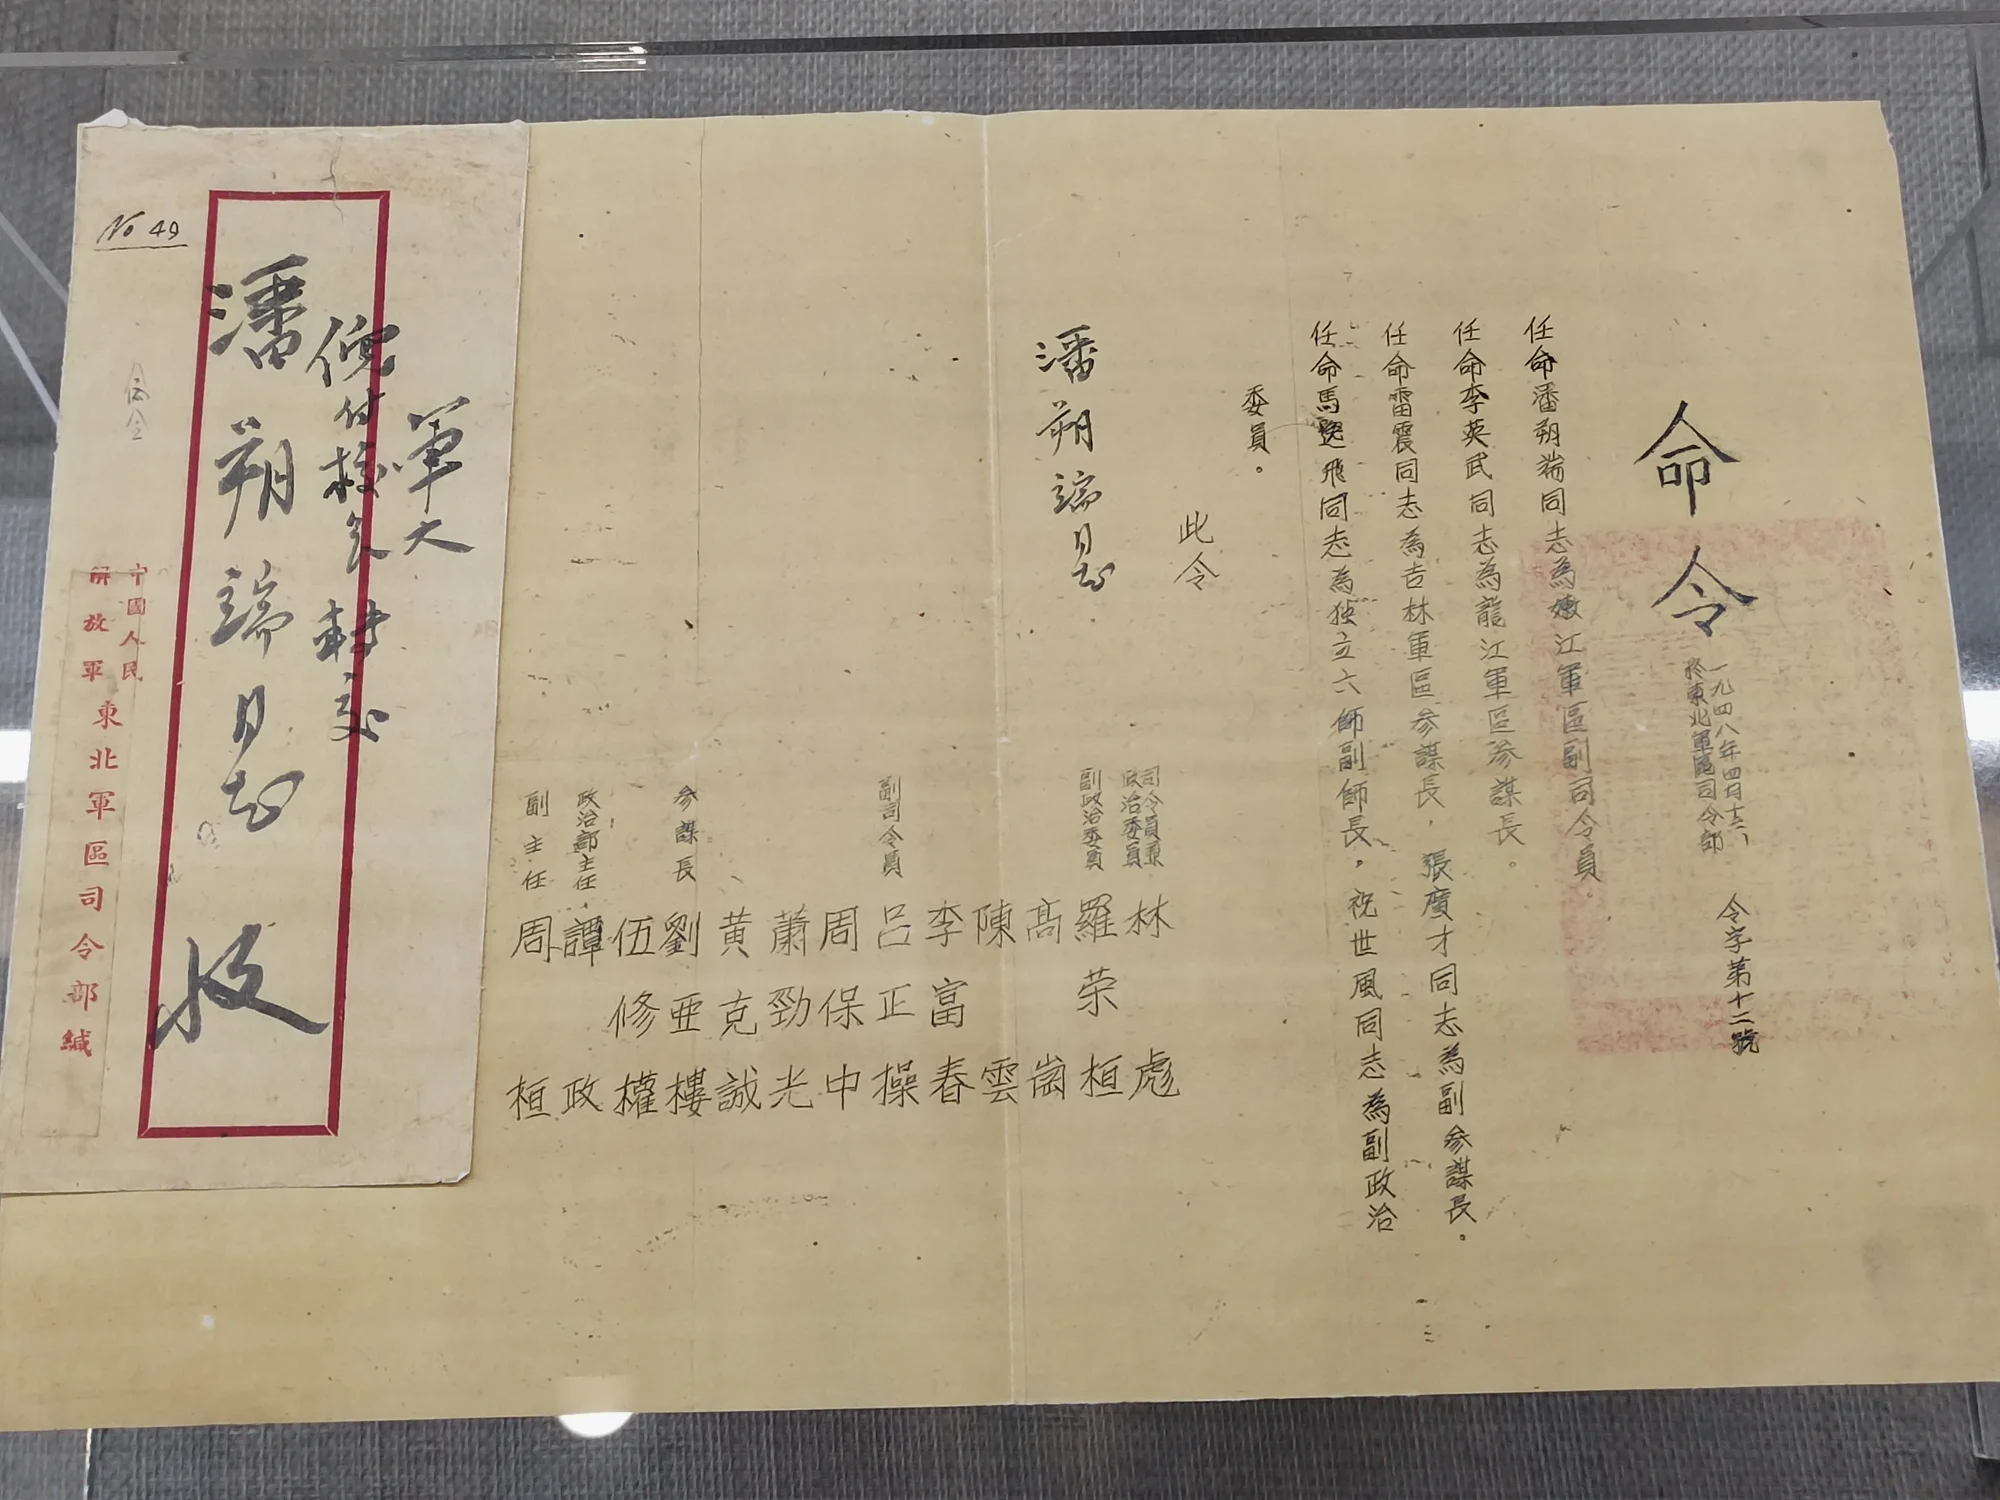 命令
一九四八年四月十六
於東北軍區司令部
令字第十二號
任命潘朔端同志為嫩江軍區副司令員。
任命李英武同志為龍江軍區參謀長。
任命雷震同志為吉林軍區參謀長，張廣才同志為副參謀長。
任命馬逸飛同志為独立六師副師長，祝世風同志為副政治
委員。
此令
潘朔端同志
司令員兼
政治委員
林彪
副政治委員
羅荣桓
高崗
陳雲
李富春
副司令員
呂正操
周保中
蕭勁光
黄克誠
參謀長
劉亜樓
伍修權
政治部主任
譚政
副主任
周桓
軍大
倪付校長轉交
潘朔端同志
收
No 49
中國人民
解放軍
東北軍區司令部緘